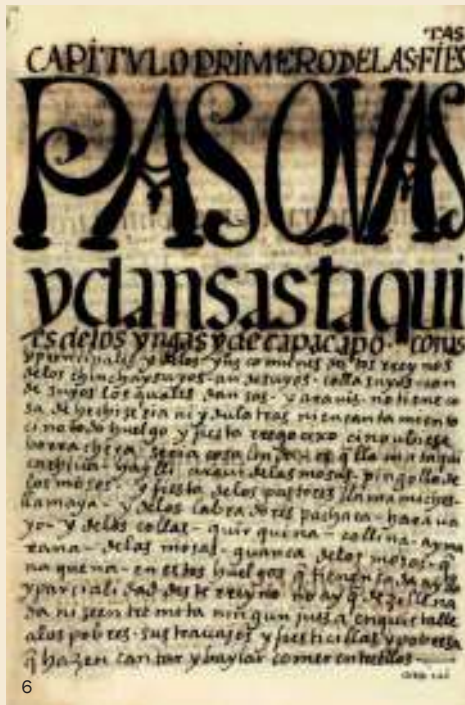 CAPITVLO PRIMERO DE LAS FIES
TAS
PASQVAS
y dansas taqui
es de los yngas y de capac apo.
y prencipales y de los yns comunes destos rreynos
de los chinchaysuyos - andesuyos - collasuyos - con
desuyos los quales dansas - y arauis no tiene co
sa de hechiseria ni ydulatras ni encantamiento
cino todo huelgo y fiesta rregocixo ci no ubiese
borrachera seria cosa linda es q llama taqui
cachiua - haylli araui de las mosas - pingollo de
los mosos y fiesta de los pastores llama miches
llamaya - y de los labradores pachaca - harauа
yo - y de los collas - quirquina - collina - ayma
rana - de las mosas - guanca de los mosos - q
na quena - en estos huelgos q tienen
y parcialidad deste rreyno no ay q dezille na
da ni se entremeta ningun jues a enquietalle
a los pobres - sus trauajos y fiesticillas y pobresa
q hazen cantar y baylar comer entre ellos
6